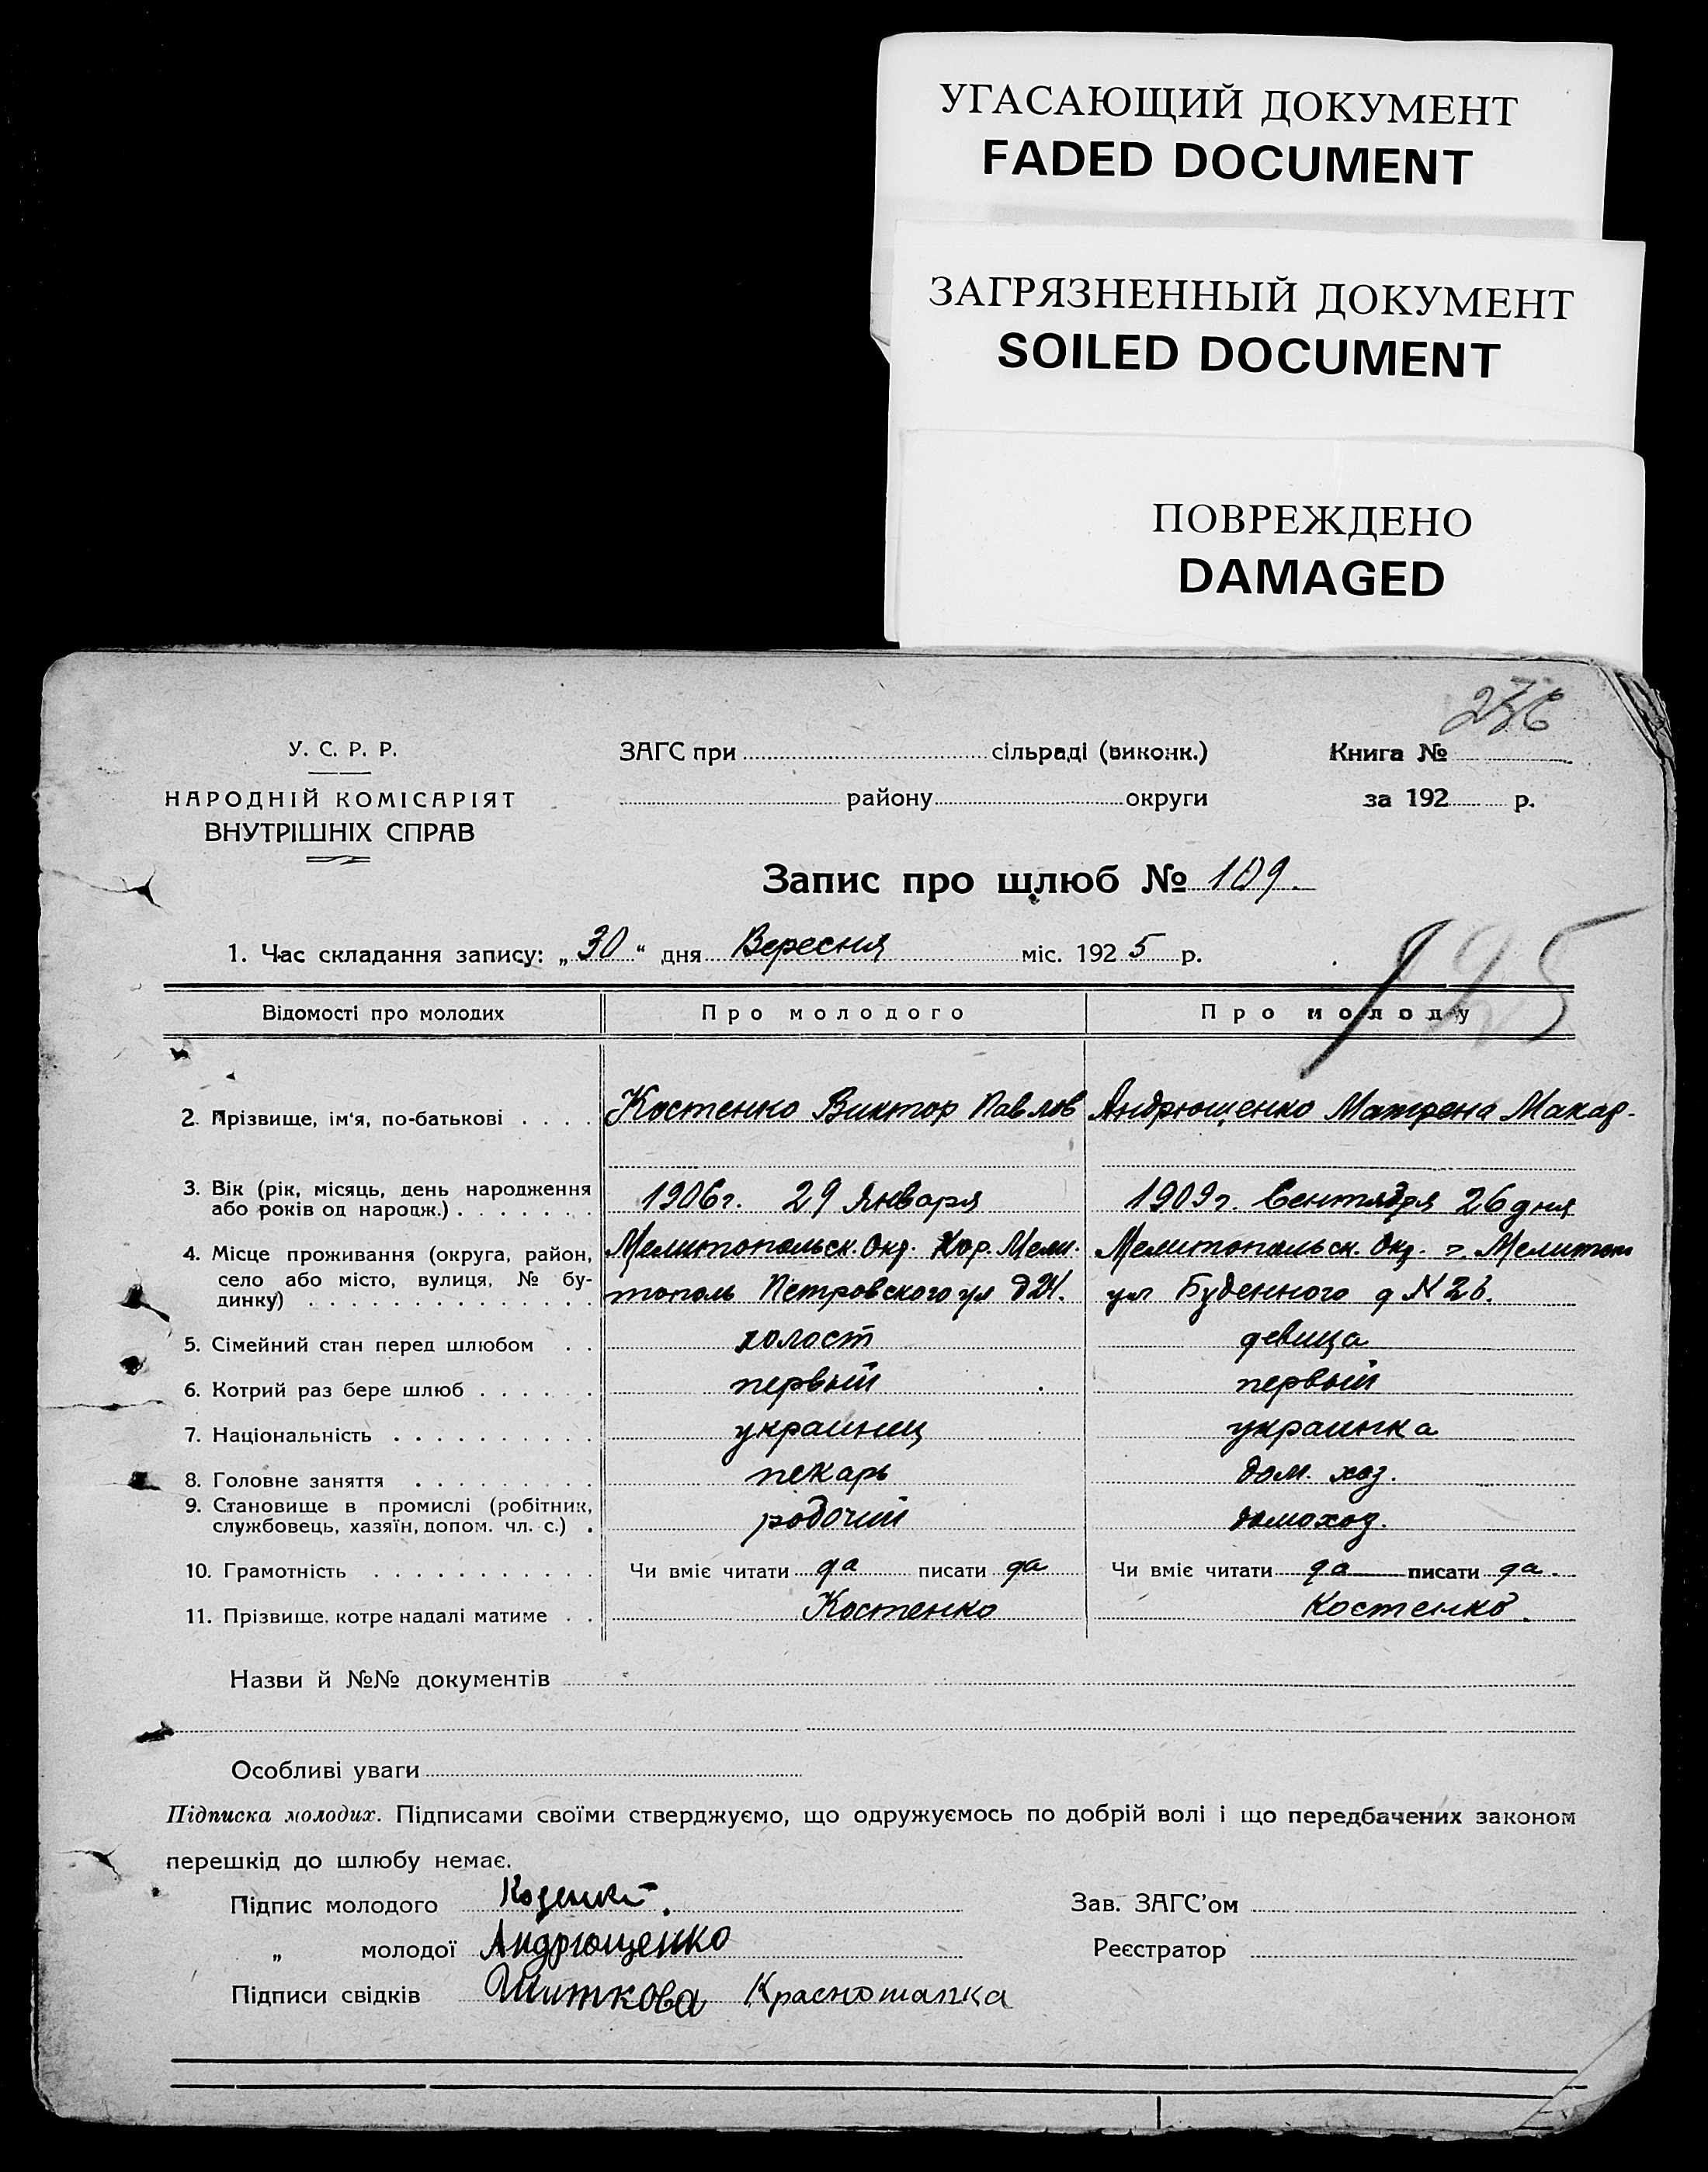 УГАСАЮЩИЙ ДОКУМЕНТ
FADED DOCUMENT
ЗАГРЯЗНЕННЫЙ ДОКУМЕНТ
SOILED DOCUMENT
ПОВРЕЖДЕНО
DAMAGED
У. С. Р. Р.
НАРОДНІЙ КОМІСАРІЯТ
ВНУТРІШНІХ СПРАВ
ЗАГС при сільраді (виконк.)
району округи
Книга №
за 192 р.
Запис про шлюб № 109.
1. Час складання запису: „30" дня Вересня міс. 1925 р.
125
Відомості про молодих Про молодого Про молоду
2. Прізвище, ім'я, по-батькові . . . . Костенко Виктор Павлов Андрющенко Матрена Макар-
3. Вік (рік, місяць, день народження
або років од народж.) . . . . . . . 1906 г. 29 Января 1909 г. Сентября 26 дня
4. Місце проживання (округа, район, Мелитопольск. Окр. Гор. Мели- Мелитопольск. Окр. г. Мелитоп
село або місто, вулиця, № бу-
динку) . . . . . . . . . . . . . . тополь Петровского ул ул Буденного д № 26.
5. Сімейний стан перед шлюбом . . холост девица
6. Котрий раз бере шлюб . . . . . . первый первый
7. Національність . . . . . . . . . . украинец украинка
8. Головне заняття . . . . . . . . . пекарь дом. хоз.
9. Становище в промислі (робітник,
службовець, хазяїн, допом. чл. с.) . рабочий домохоз.
10. Грамотність . . . . . . . . . . . Чи вміє читати да писати да Чи вміє читати да писати да.
11. Прізвище, котре надалі матиме . . Костенко Костенко.
Назви й №№ документів
Особливі уваги
Підписка молодих. Підписами своїми стверджуємо, що одружуємось по добрій волі і що передбачених законом
перешкід до шлюбу немає.
Підпис молодого
Зав. ЗАГС'ом
„ молодої Андрющенко
Реєстратор
Підписи свідків Шиткова Красношапка